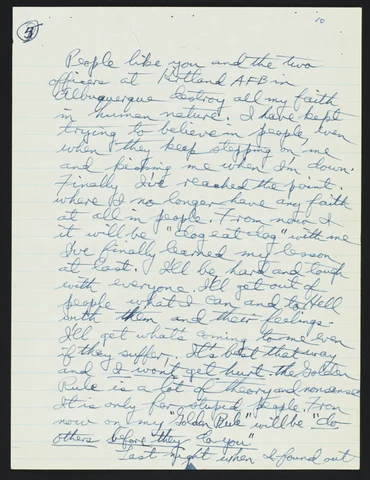 5
10
People like you and the two
officers at Kirtland AFB in
Albuquerque destroy all my faith
in human nature. I have kept
trying to believe in people, even
when they keep stepping on me
and kicking me when I'm down.
Finally I've reached the point
where I no longer have any faith
at all in people. From now on
it will be "dog eat dog" with me
I've finally learned my lesson
at last. I'll be hard and tough
with everyone. I'll get out of
people what I can and to Hell
with them and their feelings.
I'll get what's coming to me even
if they suffer. It's best that way
and I won't get hurt. The Golden
Rule is a lot of theory and nonsense
It is only for stupid people. From
now on my "Golden Rule" will be "do
others before they do you"
Last night when I found out